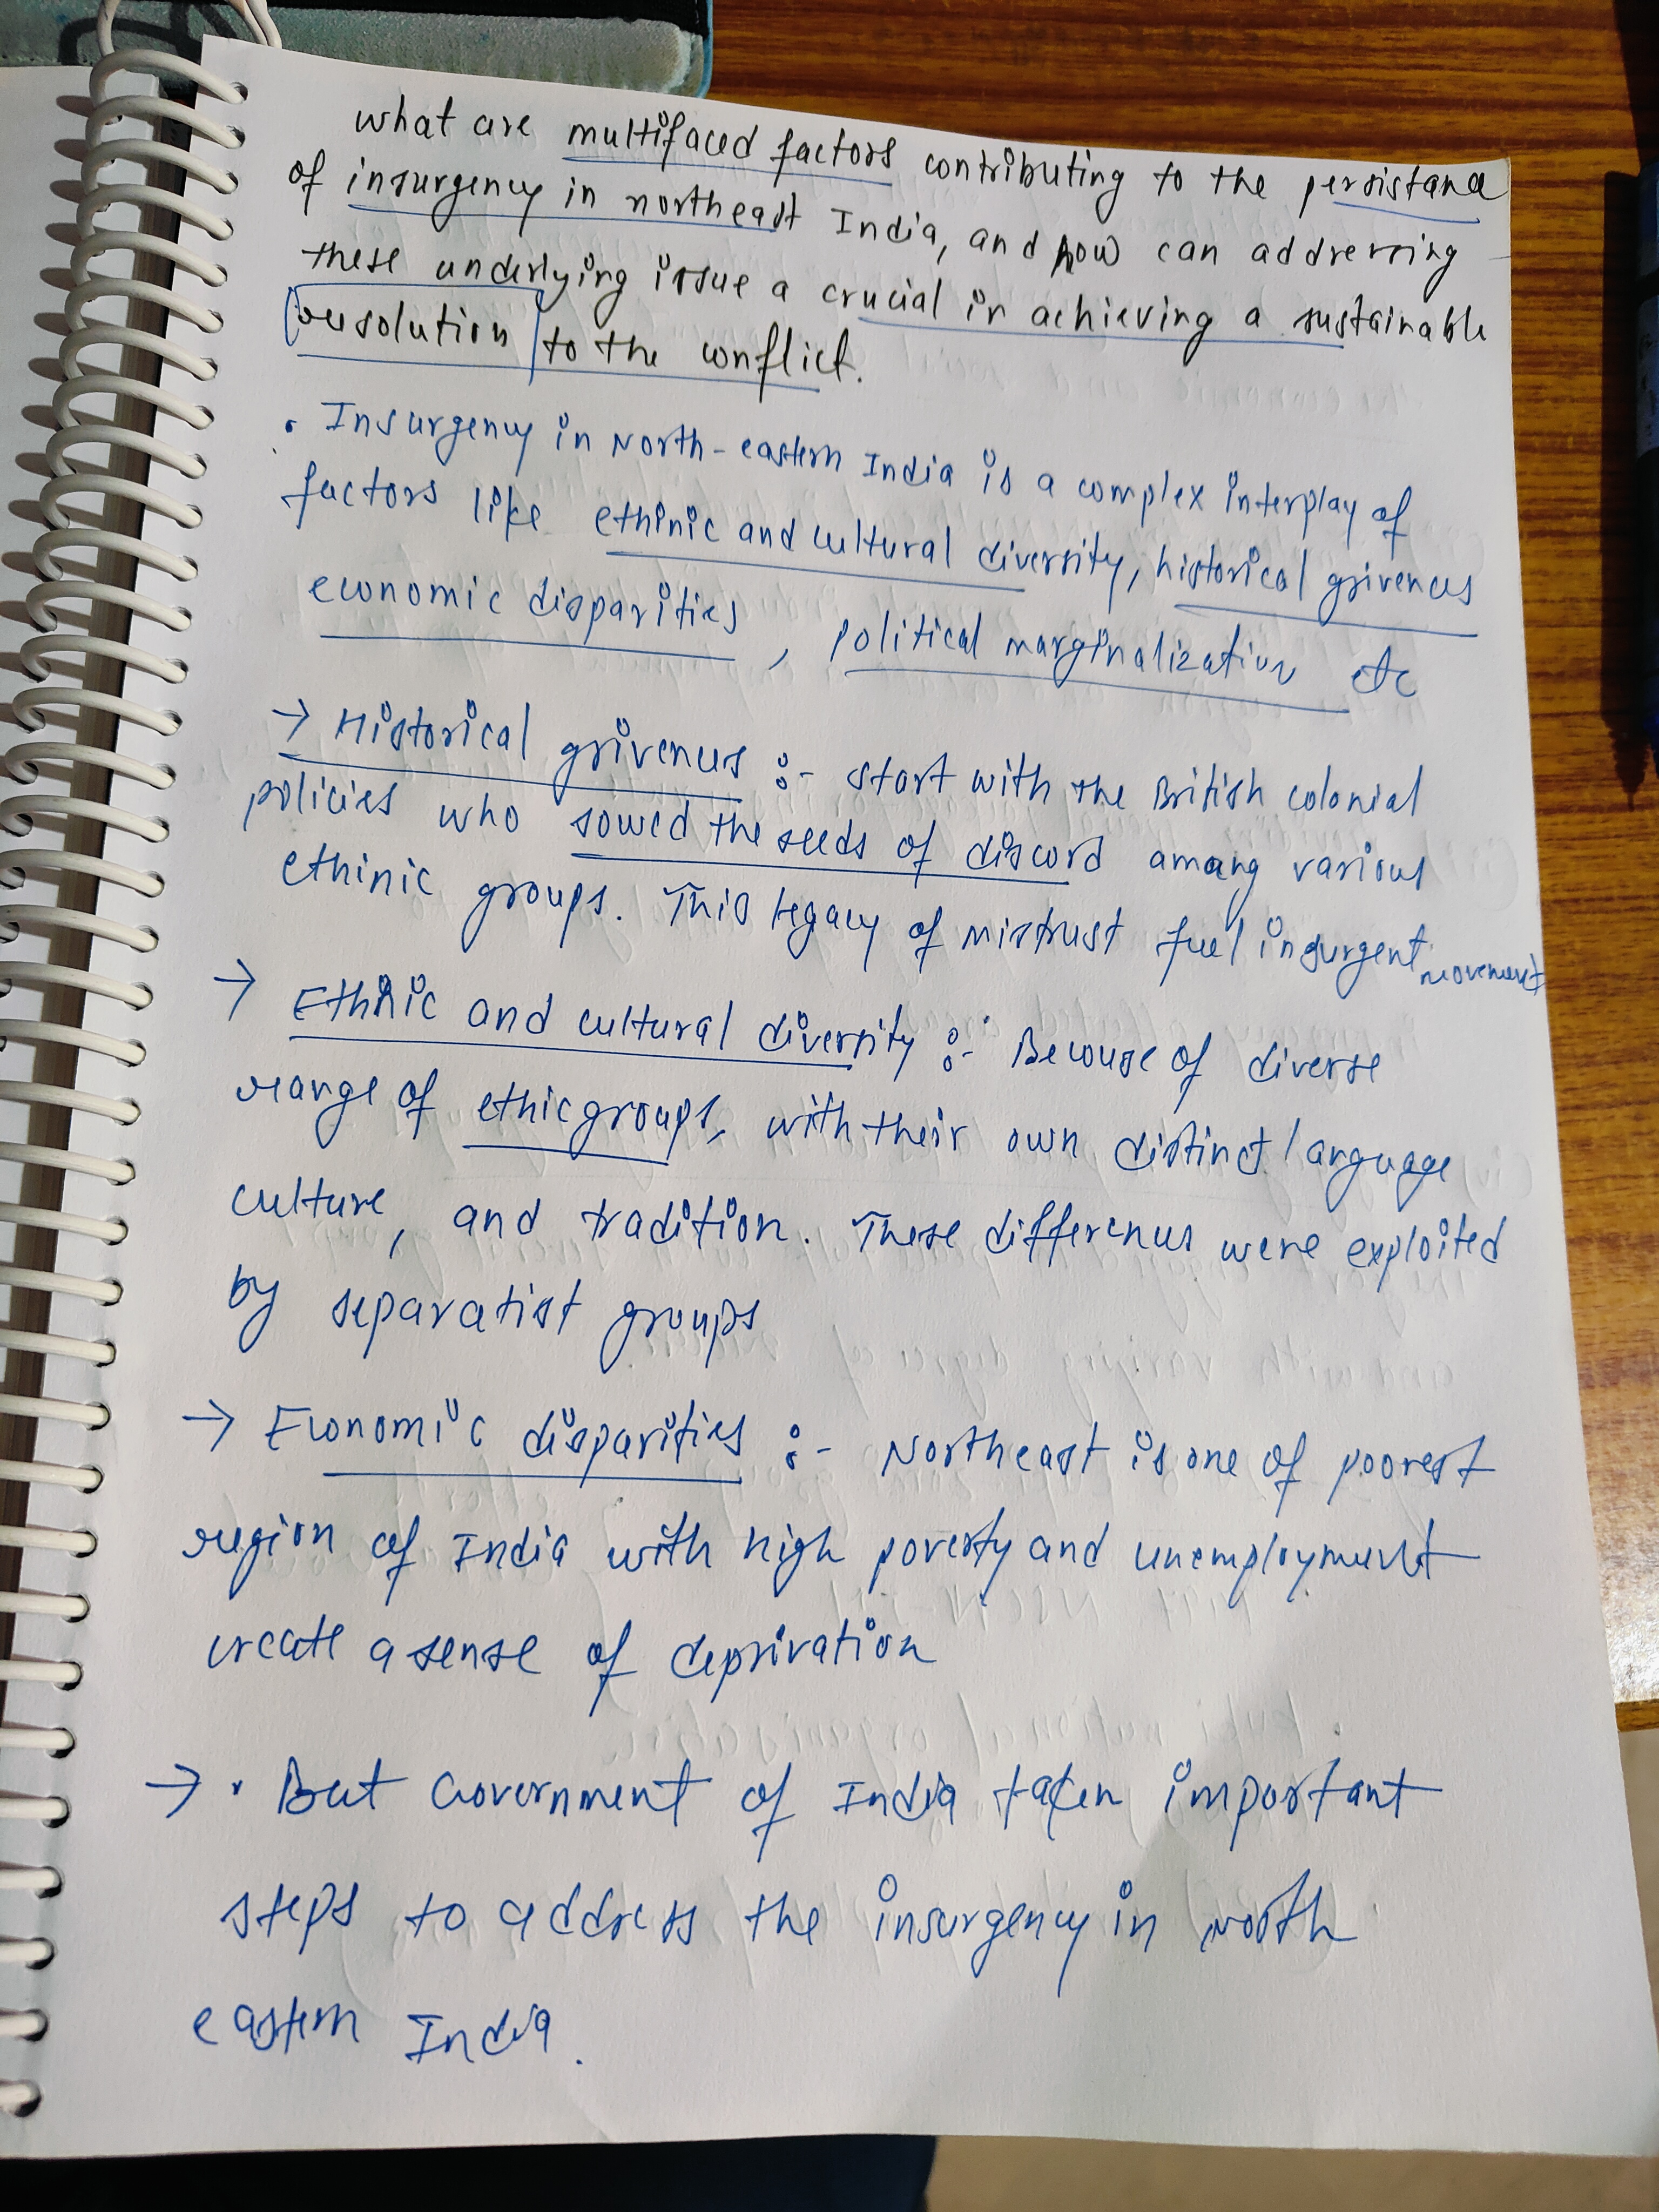 what are multifaced factors contributing to the persistance
of insurgency in northeast India, and how can addressing
these underlying issue a crucial in achieving a sustainable
resolution to the conflict.
• Insurgency in North-eastern India is a complex interplay of
factors like ethinic and cultural diversity, historical grivences
economic disparities, political marginalization etc
→ Historical grivences :- start with the British colonial
policies who sowed the seeds of discord among various
ethinic groups. This legacy of mistrust fuel insurgent movement
→ Ethnic and cultural diversity :- Becouse of diverse
range of ethic groups, with their own distinct language
culture, and tradition. These differences were exploited
by separatist groups
→ Economic disparities :- Northeast is one of poorest
region of India with high poverty and unemployment
create a sense of deprivation
→ • But Government of India taken important
steps to address the insurgency in north
eastern India.